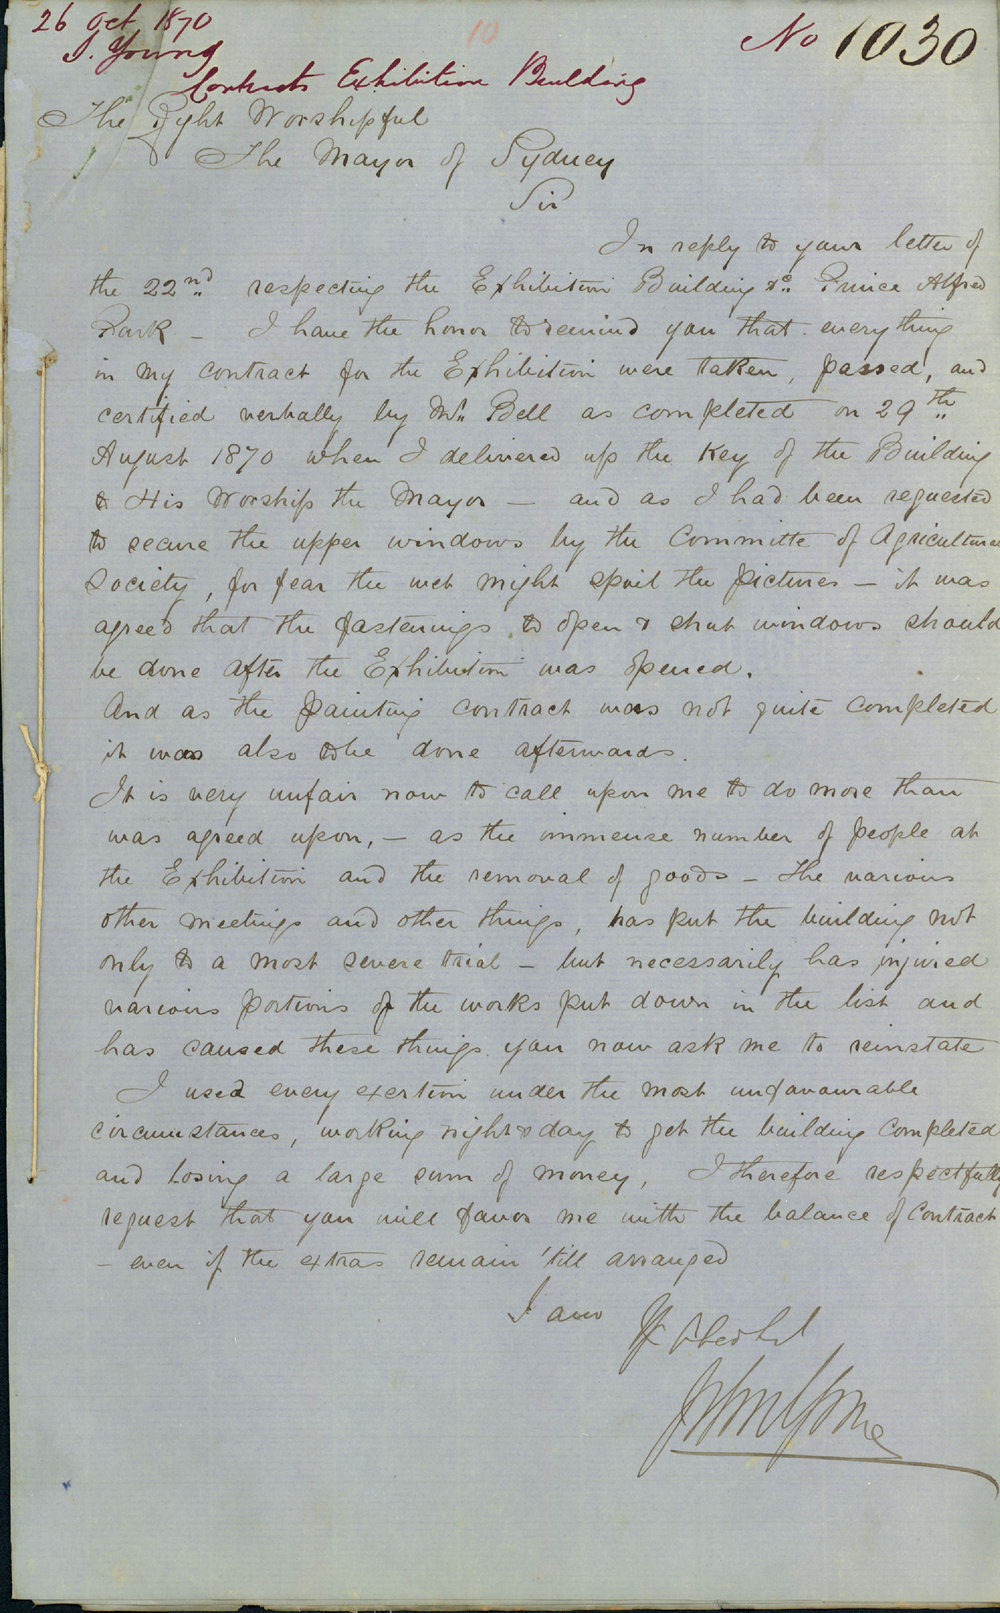 26 Oct 1870
J. Young
10
No 1030
Contracts Exhibition Building
The Right Worshipful
The Mayor of Sydney
Sir
In reply to your letter of
the 22nd respecting the Exhibition Building &c. Prince Alfred
Park – I have the honor to remind you that everything
in my contract for the Exhibition were taken, passed, and
certified verbally by Mr. Bell as completed on 29th
August 1870 when I delivered up the Key of the Building
to His Worship the Mayor – and as I had been requested
to secure the upper windows by the Committe of Agricultural
Society, for fear the wet might spoil the pictures – it was
agreed that the fastenings to open & shut windows should
be done after the Exhibition was opened.
And as the painting contract was not quite completed
it was also to be done afterwards.
It is very unfair now to call upon me to do more than
was agreed upon, – as the immense number of people at
the Exhibition and the removal of goods – the various
other meetings and other things, has put the building not
only to a most severe trial – but necessarily has injured
various portions of the works put down in the list and
has caused these things you now ask me to reinstate
I used every exertion under the most unfavourable
circumstances, working night & day to get the building completed
and losing a large sum of money, I therefore respectfully
request that you will favor me with the balance of Contract
– even if the extras remain 'till arranged
I am
Yr Obedt
John Young